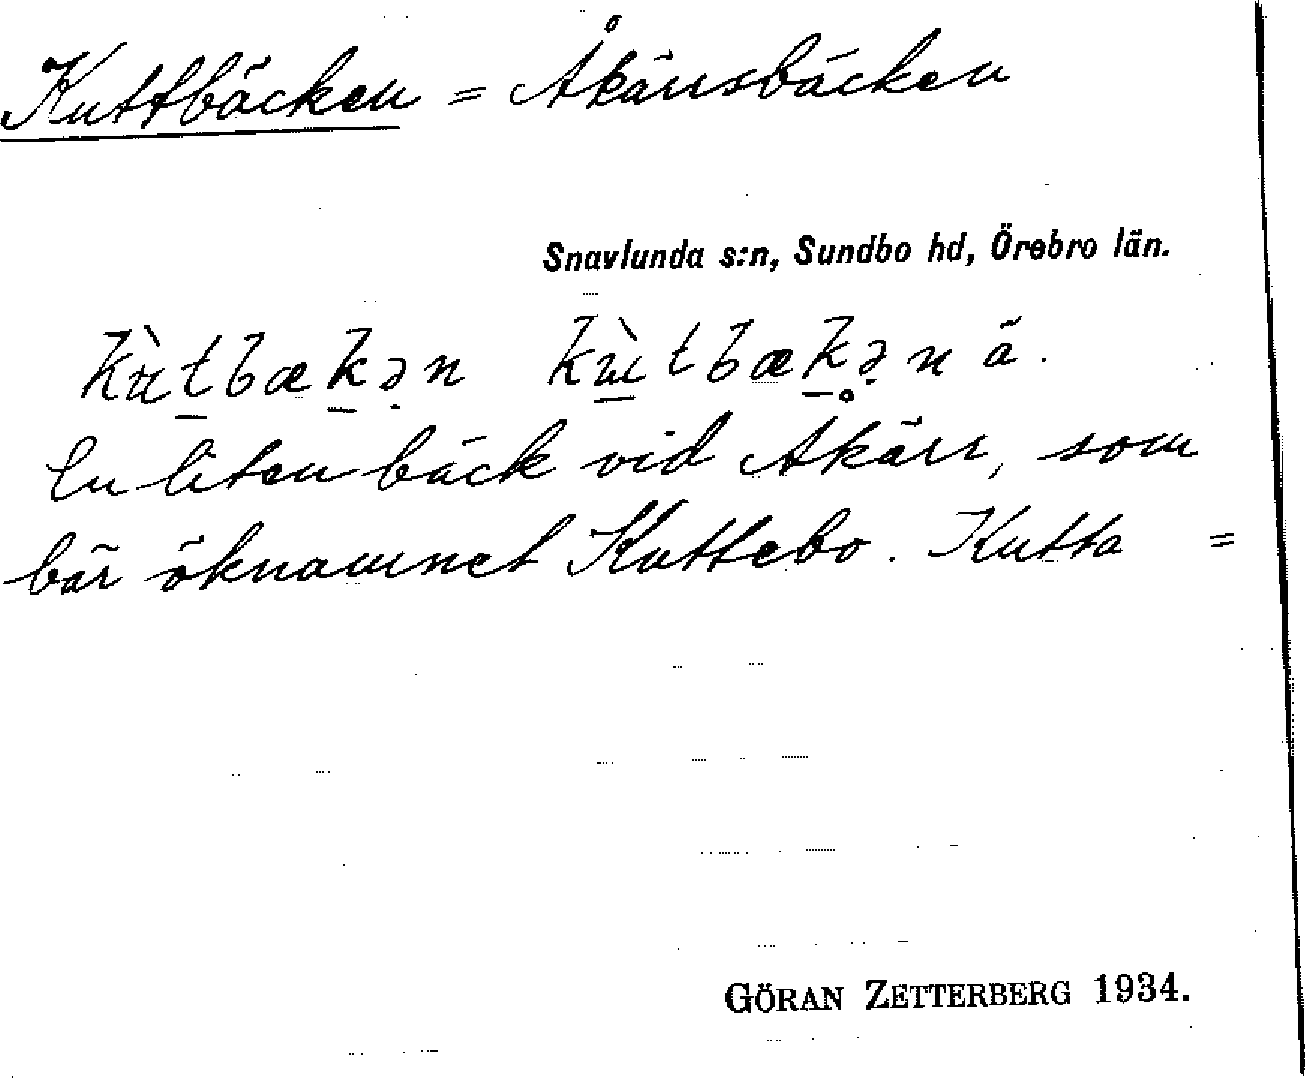 Kuttbäcken = Åkärrsbäcken
Snavlunda s:n, Sundbo hd, Örebro län.
kùtbækən kùtbækən ä.
En liten bäck vid Åkärr, som
bär öknamnet Kuttebo. Kutta =
GÖRAN ZETTERBERG 1934.